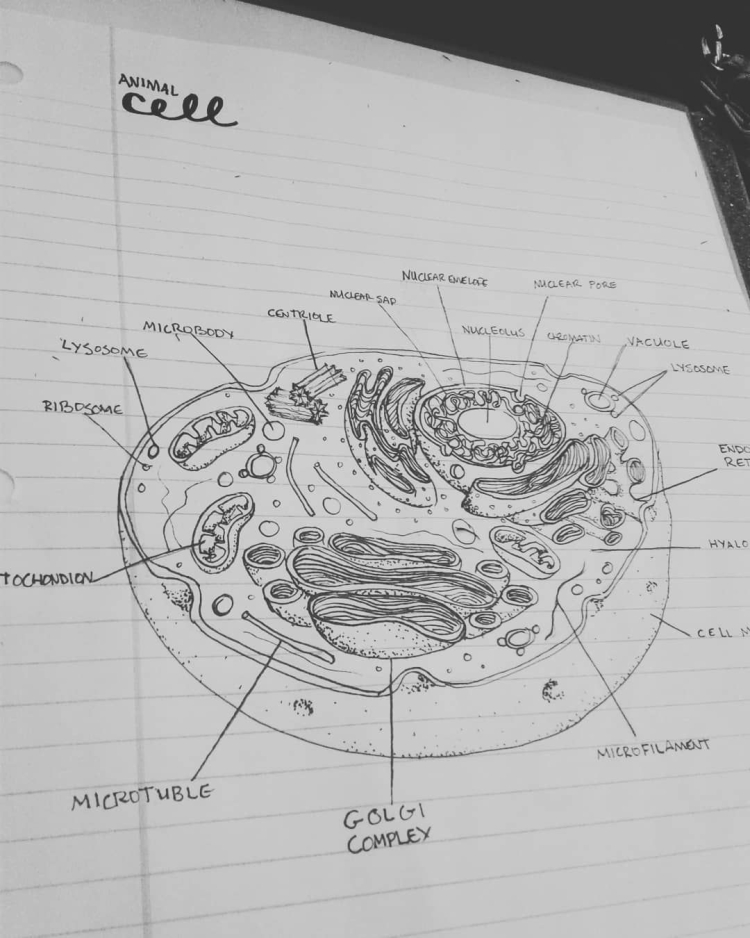 ANIMAL
cell
NUCLEAR ENVELOPE
NUCLEAR PORE
NUCLEAR SAP
CENTRIOLE
MICROBODY
NUCLEOLUS
CROMATIN
VACUOLE
LYSOSOME
LYSOSOME
RIBOSOME
ENDO
RET
HYALO
TOCHONDION
CELL M
MICROFILAMENT
MICROTUBLE
GOLGI
COMPLEY